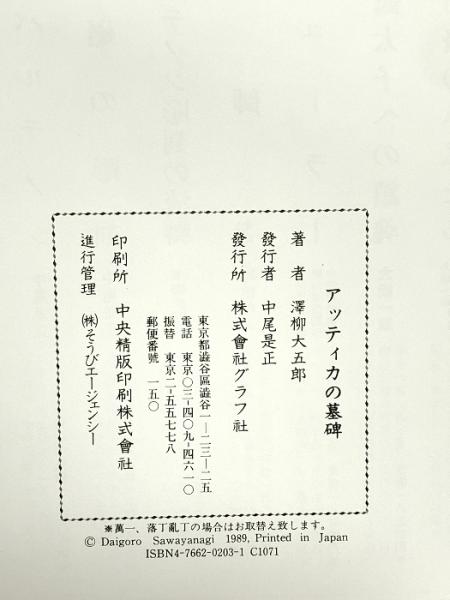 アッティカの墓碑
著者 澤柳大五郎
發行者 中尾是正
發行所 株式會社グラフ社
東京都澁谷區澁谷一―二三―二五
電話 東京〇三―四〇九―四六一〇
振替 東京二―五五七七八
郵便番號 一五〇
印刷所 中央精版印刷株式會社
進行管理 ㈱そうびエージェンシー
※萬一、落丁亂丁の場合はお取替え致します。
© Daigoro Sawayanagi 1989, Printed in Japan
ISBN4-7662-0203-1 C1071